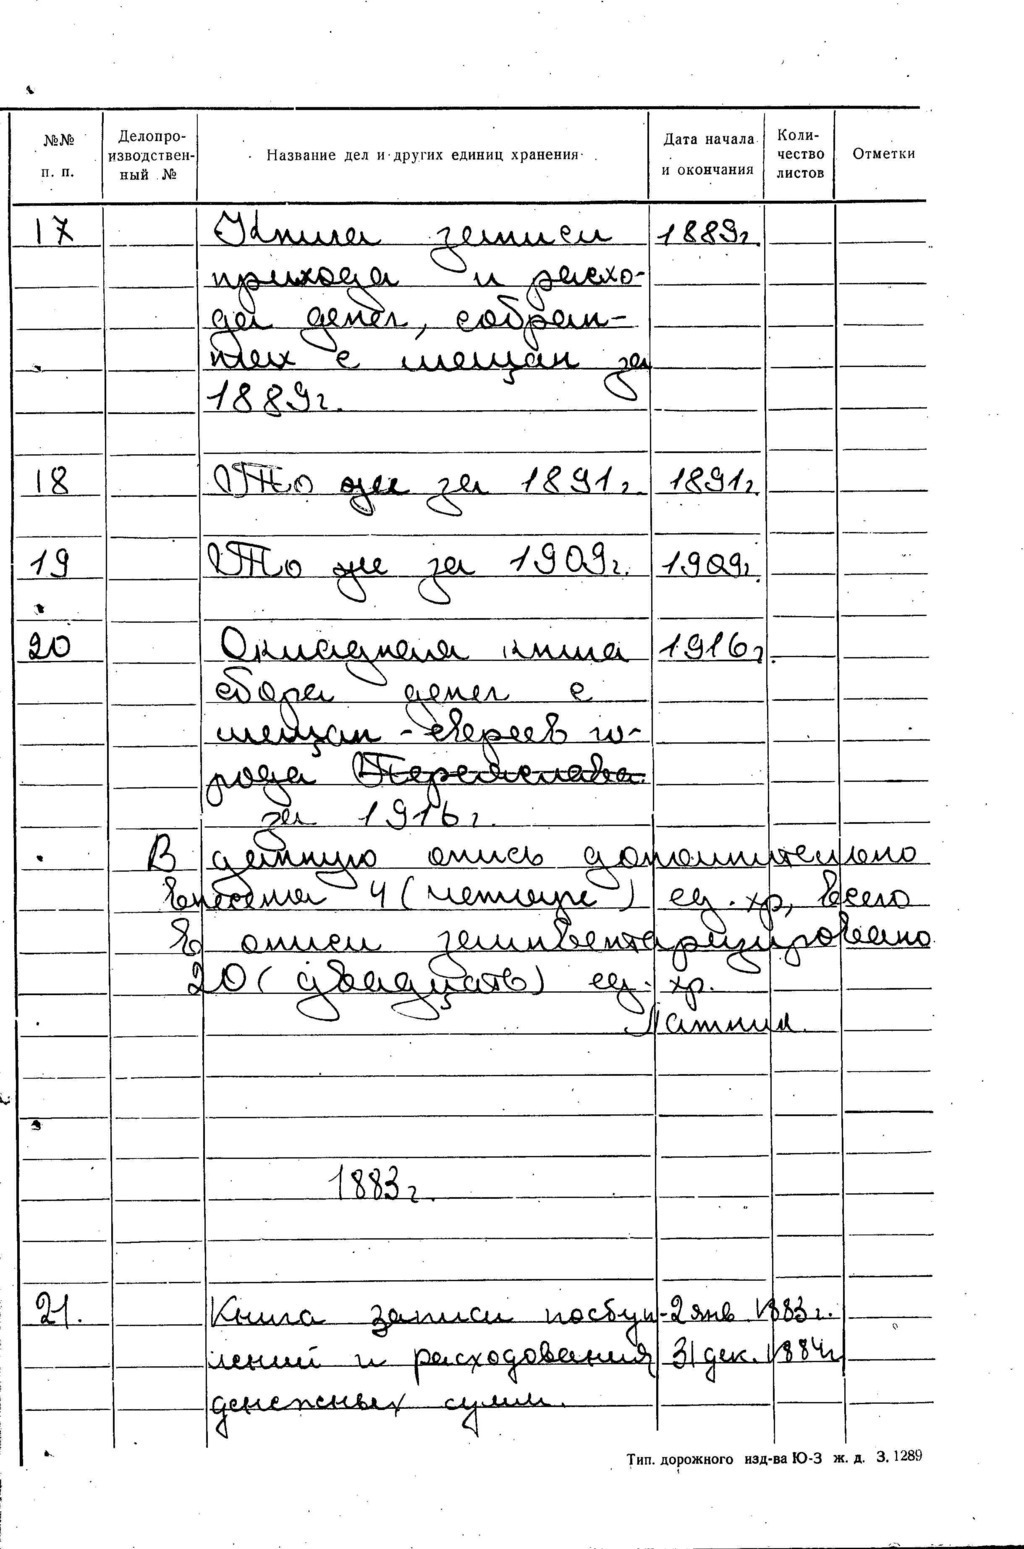 №№ п. п. Делопроизводственный № Название дел и других единиц хранения Дата начала и окончания Количество листов Отметки
17 Книга записи 1889г.
прихода и расхо-
да денег, собран-
ных с мещан за
1889г.
18 То же за 1891г. 1891г.
19 То же за 1909г. 1909г.
20 Окладная книга 1916г.
сбора денег с
мещан-евреев го-
рода Переяслава
за 1916г.
В данную опись дополнительно
внесены 4 (четыре) ед. хр, всего
в описи заинвентаризировано
20 (двадцать) ед. хр.
1883г.
21. Книга записи поступ- 2 янв. 1883г.
лений и расходования 31 дек. 1884г
денежных сумм.
Тип. дорожного изд-ва Ю-З ж. д. З. 1289